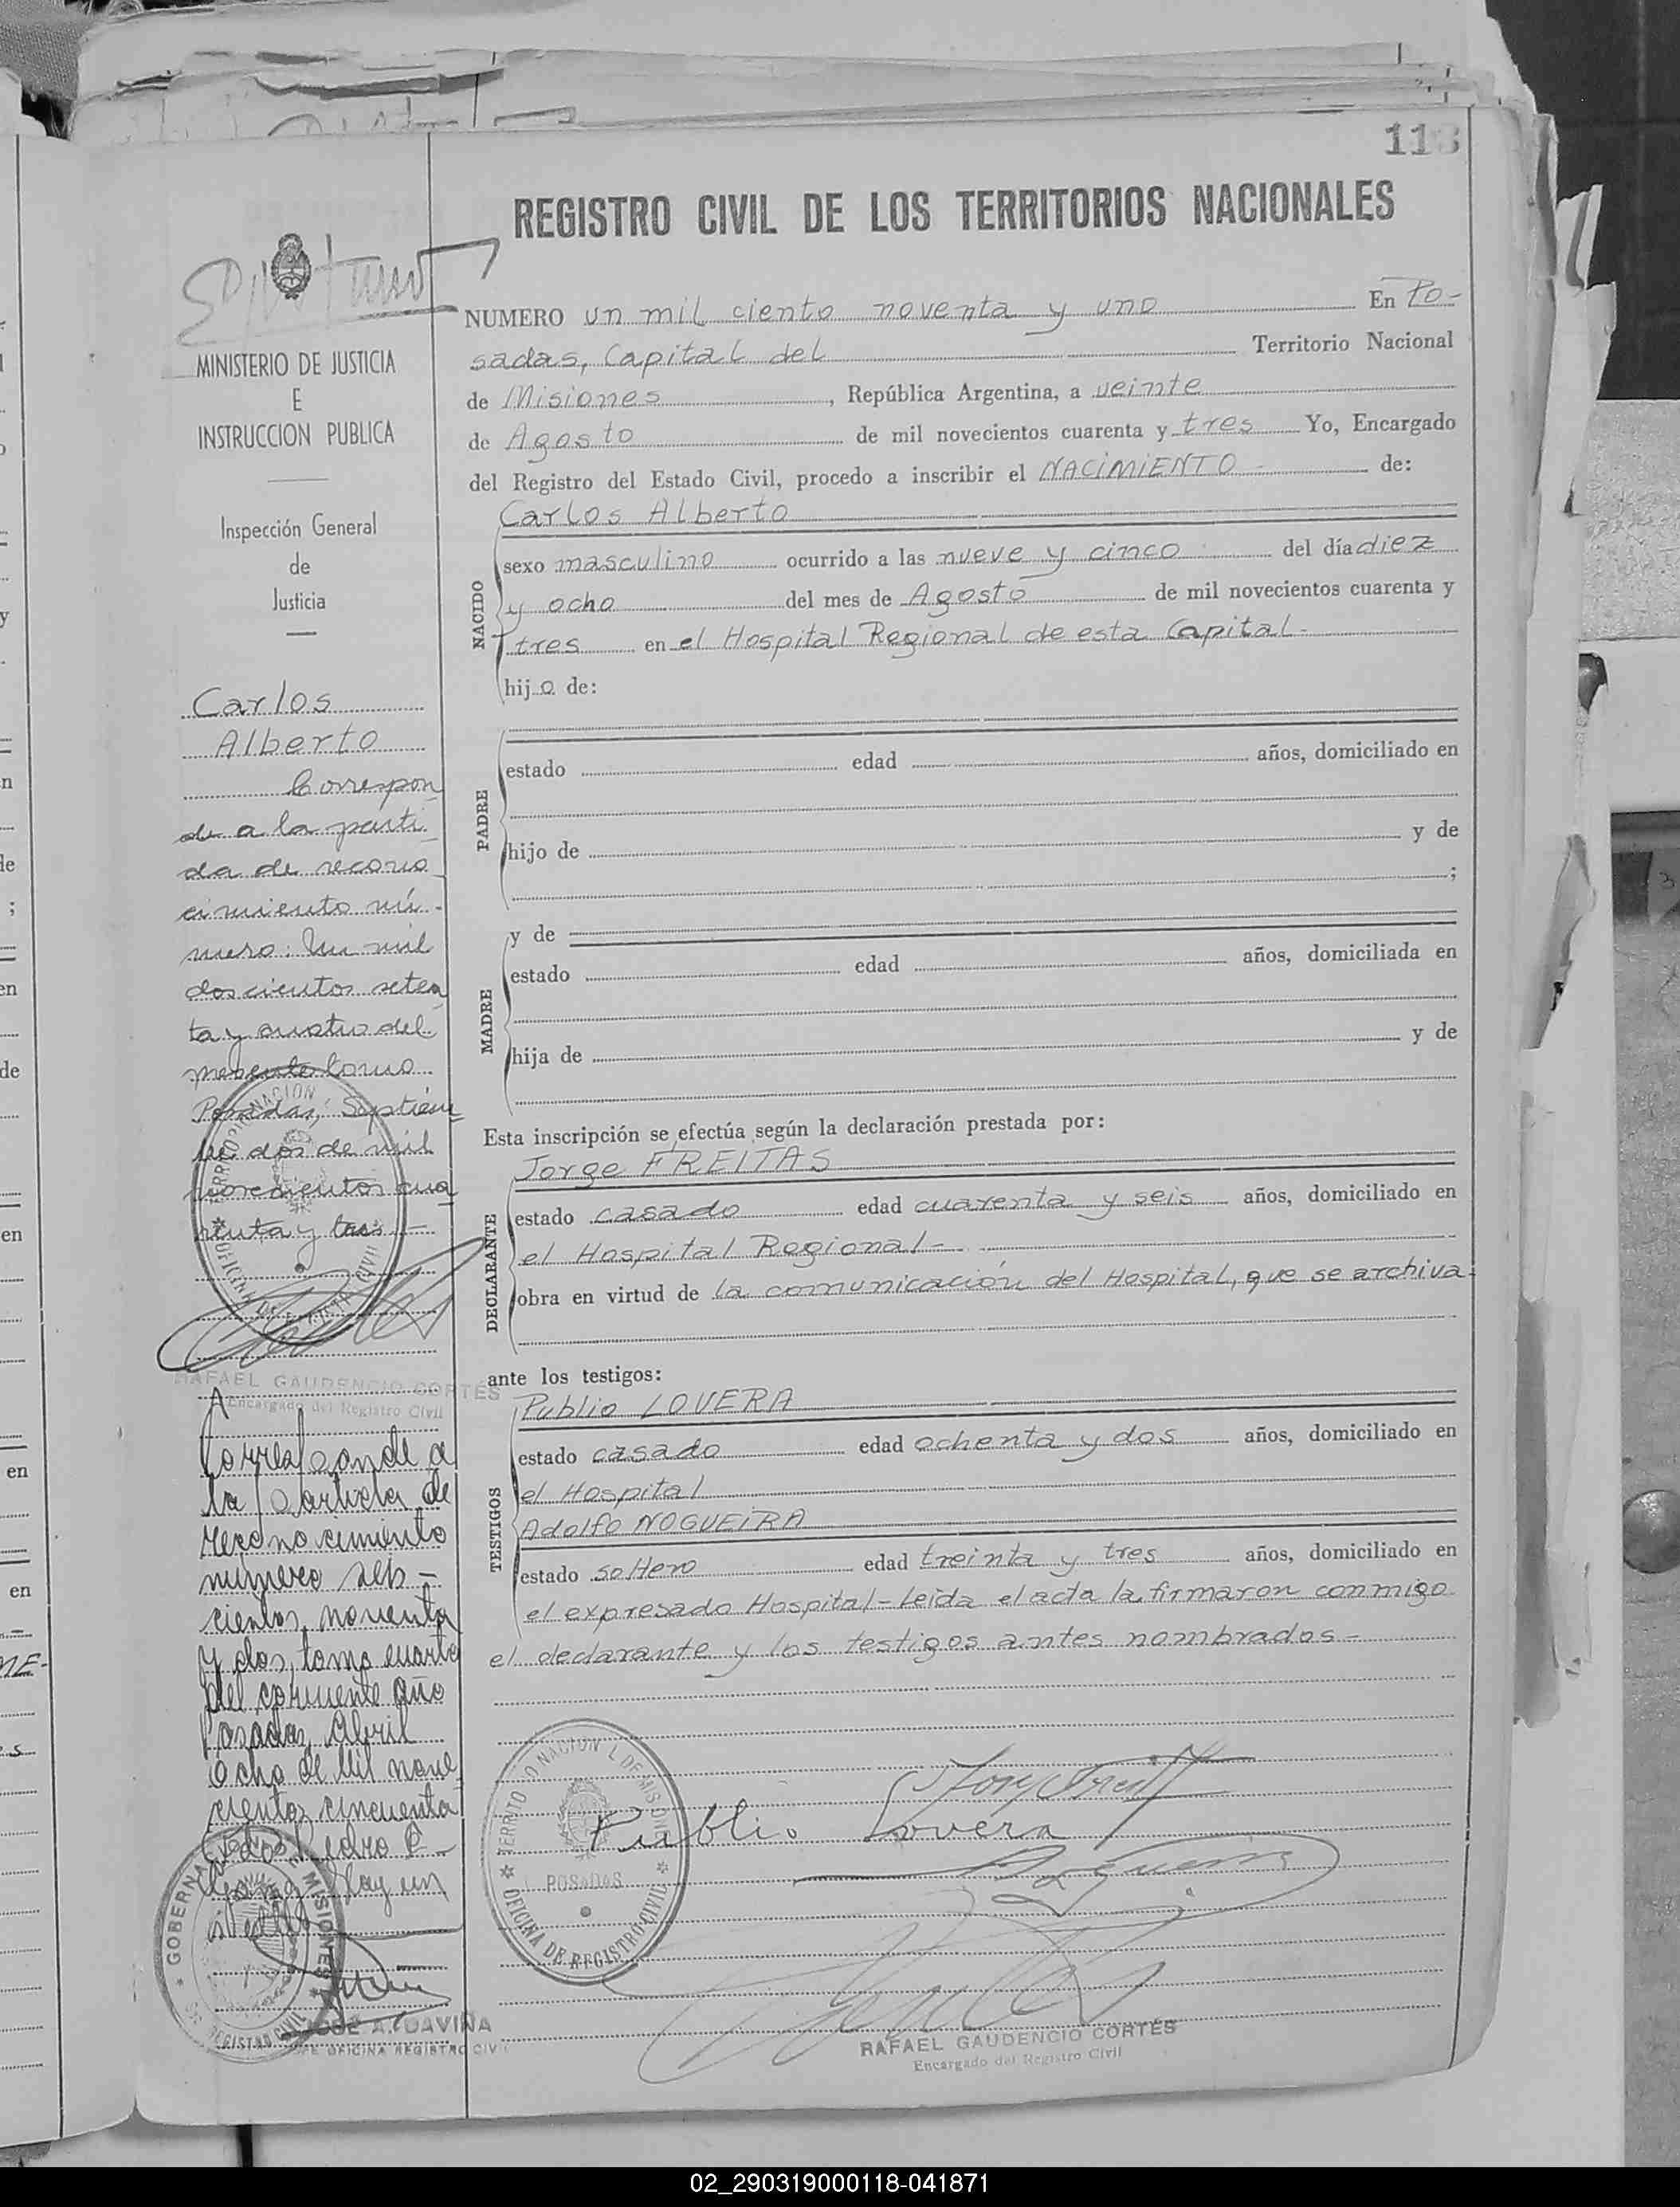 118
REGISTRO CIVIL DE LOS TERRITORIOS NACIONALES
MINISTERIO DE JUSTICIA
E
INSTRUCCION PUBLICA
Inspección General
de
Justicia
Carlos
Alberto
Correspon
de a la parti
da de recono
cimiento nú-
mero: Un mil
doscientos seten
ta y cuatro del
presente tomo.
Posadas, Septiem
bre dos de mil
novecientos cua
renta y tres.-
RAFAEL GAUDENCIO CORTÉS
Encargado del Registro Civil
Corresponde a
la partida de
reconocimiento
número seis-
cientos noventa
y dos, tomo cuarto
del corriente año
Posadas, Abril
ocho de Mil nove
cientos cincuenta
Hay un
sello
JOSÉ A. DAVIÑA
JEFE OFICINA REGISTRO CIVIL
NUMERO un mil ciento noventa y uno En Po-
sadas, Capital del Territorio Nacional
de Misiones, República Argentina, a veinte
de Agosto de mil novecientos cuarenta y tres Yo, Encargado
del Registro del Estado Civil, procedo a inscribir el NACIMIENTO - de:
NACIDO
Carlos Alberto
sexo masculino ocurrido a las nueve y cinco del día diez
y ocho del mes de Agosto de mil novecientos cuarenta y
tres en el Hospital Regional de esta Capital-
hijo de:
PADRE
estado edad años, domiciliado en
hijo de y de
;
MADRE
y de
estado edad años, domiciliada en
hija de y de
Esta inscripción se efectúa según la declaración prestada por:
DECLARANTE
Jorge FREITAS
estado casado edad cuarenta y seis años, domiciliado en
el Hospital Regional-
obra en virtud de la comunicación del Hospital, que se archiva.
ante los testigos:
TESTIGOS
Publio LOVERA
estado casado edad ochenta y dos años, domiciliado en
el Hospital
Adolfo NOGUEIRA
estado soltero edad treinta y tres años, domiciliado en
el expresado Hospital-Leida el acta la firmaron conmigo
el declarante y los testigos antes nombrados-
TERRITORIO NACIONAL DE MISIONES
POSADAS
OFICINA DE REGISTRO CIVIL
Publio Lovera
RAFAEL GAUDENCIO CORTÉS
Encargado del Registro Civil
02_290319000118-041871